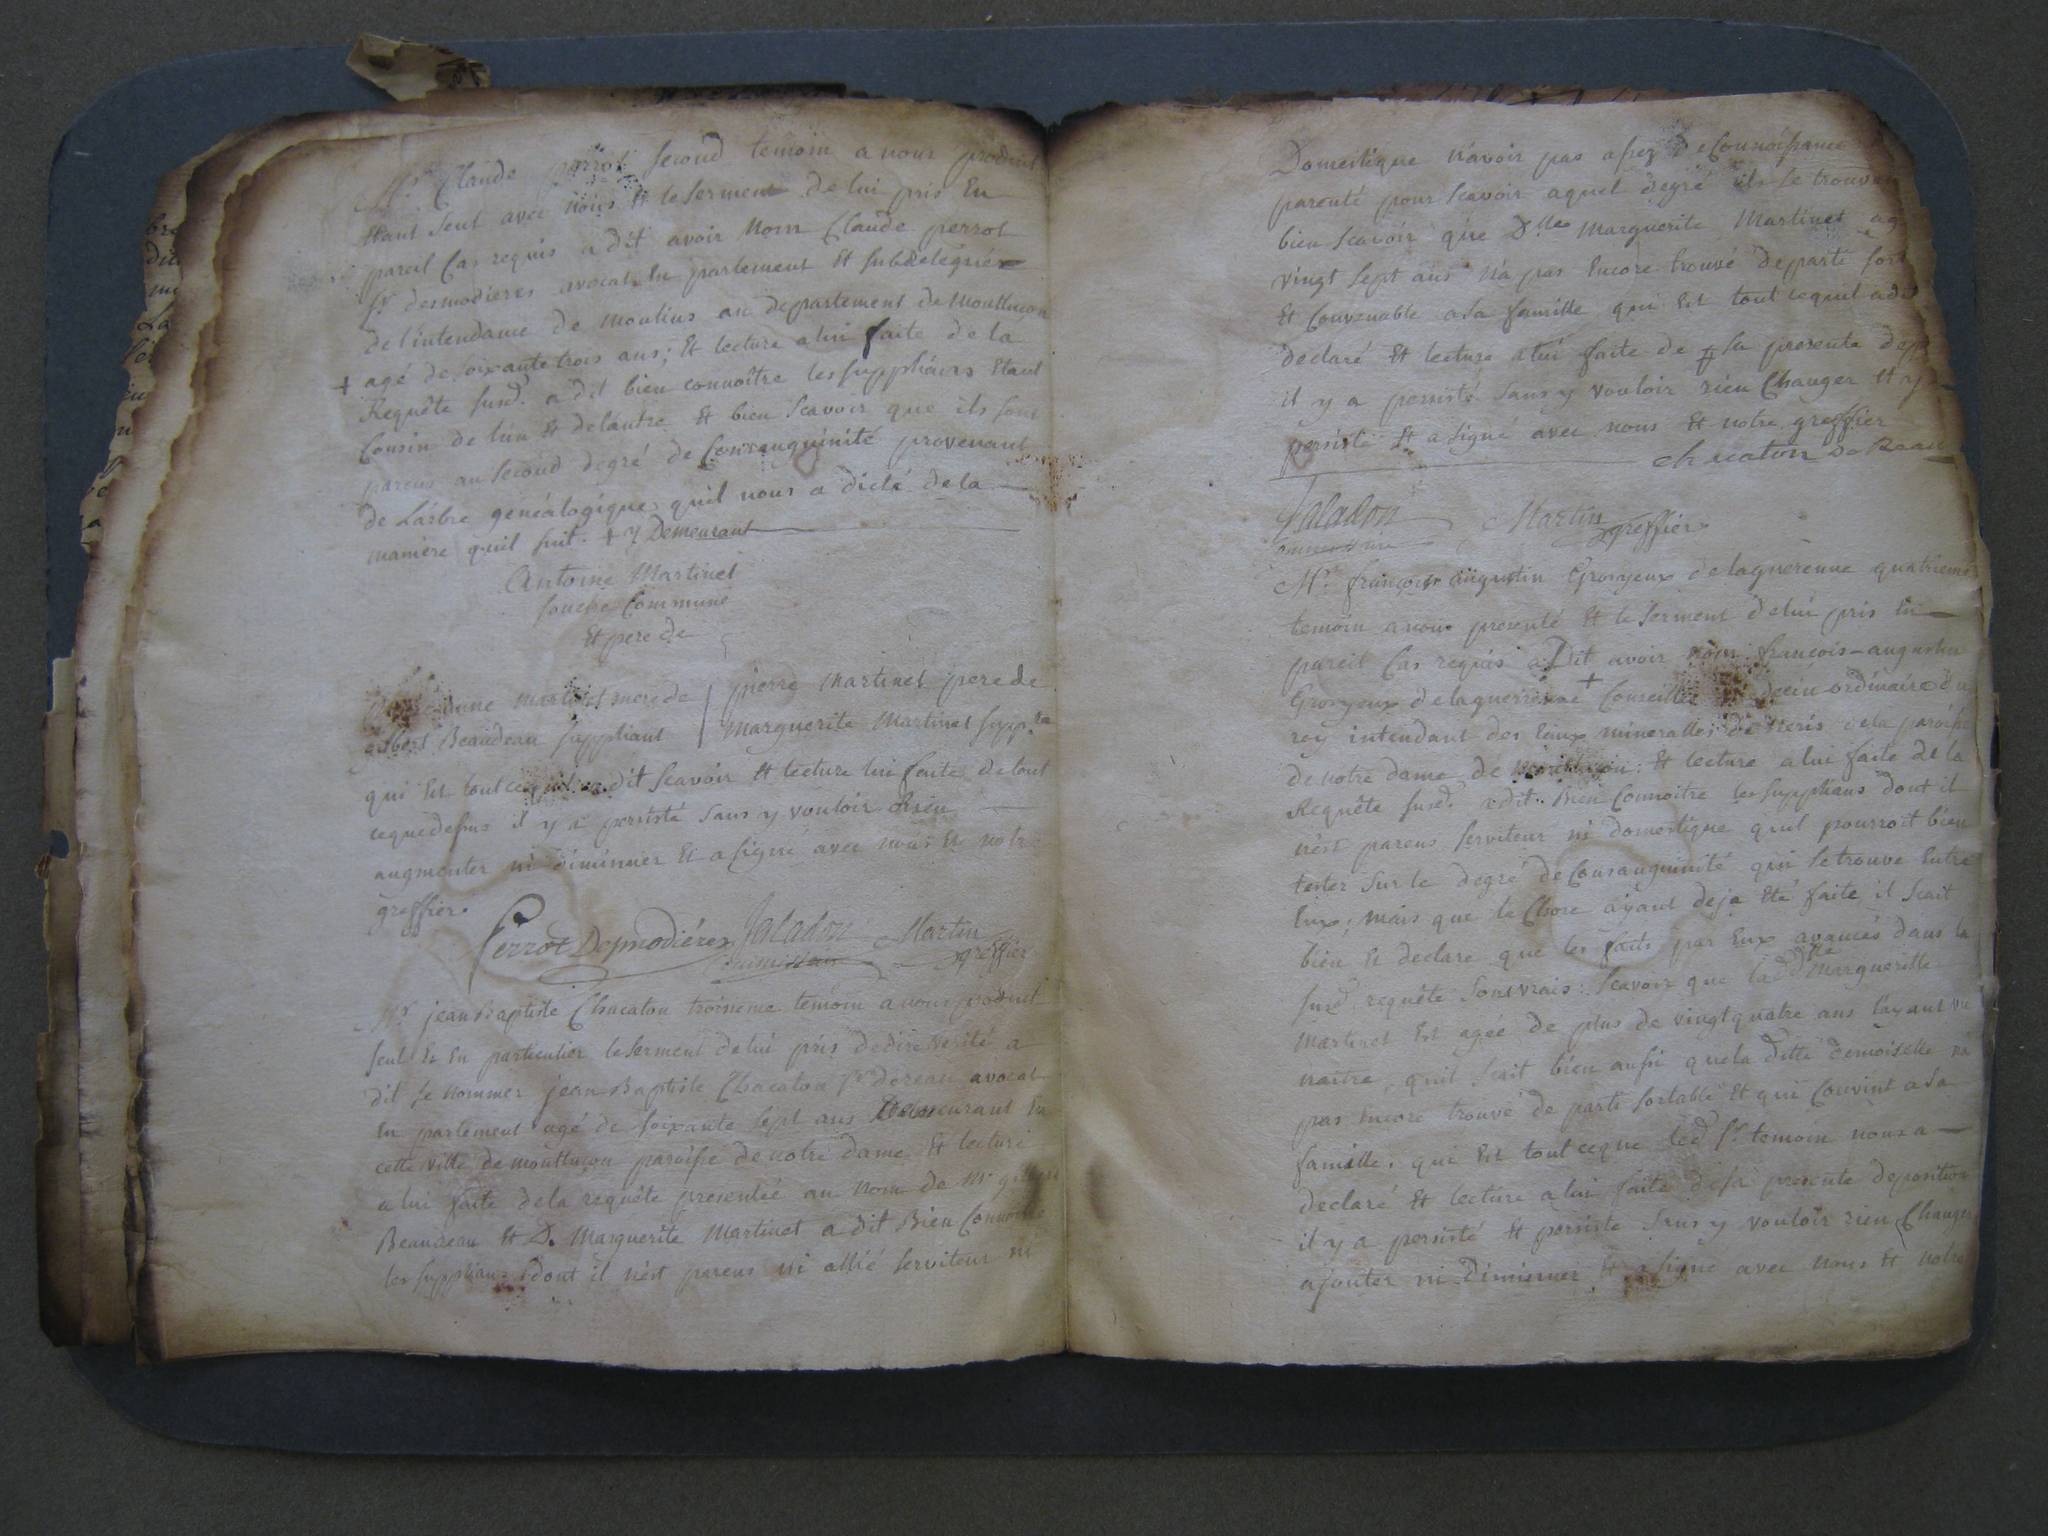 Mr. Claude perrot second temoin a nous produit
Etant seul avec nous Et le serment de lui pris En
pareil Cas requis a dit avoir Nom Claude perrot
sr. desmodieres avocat En parlement Et subdelegué
de l'intendance de moulins au departement de montlucon
+ agé de soixante trois ans; Et lecture a lui faite de la
Requête susd. a dit bien connoître les supplians Etant
Cousin de l'un Et de l'autre Et bien scavoir que ils sont
parens au second degré de Consanguinité provenant
de L'arbre généalogique qu'il nous a dicté de la
maniere qu'il suit. + y Demeurant
Antoine Martinet
souche Commune
Et pere de
Martinet mere de
gilbert Beaudeau suppliant
pierre Martinet pere de
Marguerite Martinet supp.te
qui Est tout ce qu'il a dit scavoir Et lecture lui faite de tout
ce que dessus il y a persisté sans y vouloir Rien
augmenter ni diminuer Et a signé avec nous Et notre
greffier.
Perrot Desmodiéres Jaladon Martin
Commissaire greffier
Mr. jean Baptiste Chacaton troisieme temoin a nous produit
seul Et En particulier le serment de lui pris de dire verité a
dit se nommer jean Baptiste Chacaton sr. dereau avocat
En parlement agé de soixante sept ans Demeurant En
cette ville de montlucon paroisse de notre dame Et lecture
a lui faite de la requête presentée au nom de Mr
Beaudeau Et D. Marguerite Martinet a dit Bien Connoître
les supplians dont il n'est parens ni allié serviteur ni
Domestique n'avoir pas assez de Connoissance
parenté pour scavoir a quel degré ils se trouvent
bien scavoir que Dlle Marguerite Martinet
vingt sept ans n'a pas Encore trouvé de parti
Et Convenable a sa famille qui Est tout ce qu'il a dit
declaré Et lecture a lui faite de sa presente
il y a persisté sans y vouloir rien Changer Et y
persiste Et a signé avec nous Et notre greffier
chacaton De Reau
Jaladon Martin
Commissaire greffier
Mr. françois augustin Grosyeux de laguerenne quatrieme
temoin a nous presenté Et le serment de lui pris En
pareil Cas requis a Dit avoir nom françois-augustin
Grosyeux de laguerenne + Conseiller ordinaire du
roy intendant des Eaux mineralles de neris de la paroisse
de notre dame de montlucon: Et lecture a lui faite de la
Requête susd. a dit Bien Connoitre les supplians dont il
n'est parens serviteur ni domestique qu'il pourroit bien
tester sur le degré de Consanguinité qui se trouve Entre
Eux; mais que la Chose ayant deja Eté faite il scait
bien Et declare que les faits par Eux avancés dans la
susd requête sont vrais: scavoir que la d dlle Marguerite
Martinet Est agée de plus de vingt quatre ans l'ayant vu
naitre, qu'il scait bien aussi que la ditte demoiselle n'a
pas Encore trouvé de parti sortable Et qui Convint a sa
famille. qui Est tout ce que led sr. temoin nous a
declaré Et lecture a lui faite de sa presente deposition
il y a persisté Et persiste sans y vouloir rien Changer
ajouter ni Diminuer Et a signé avec nous Et notre